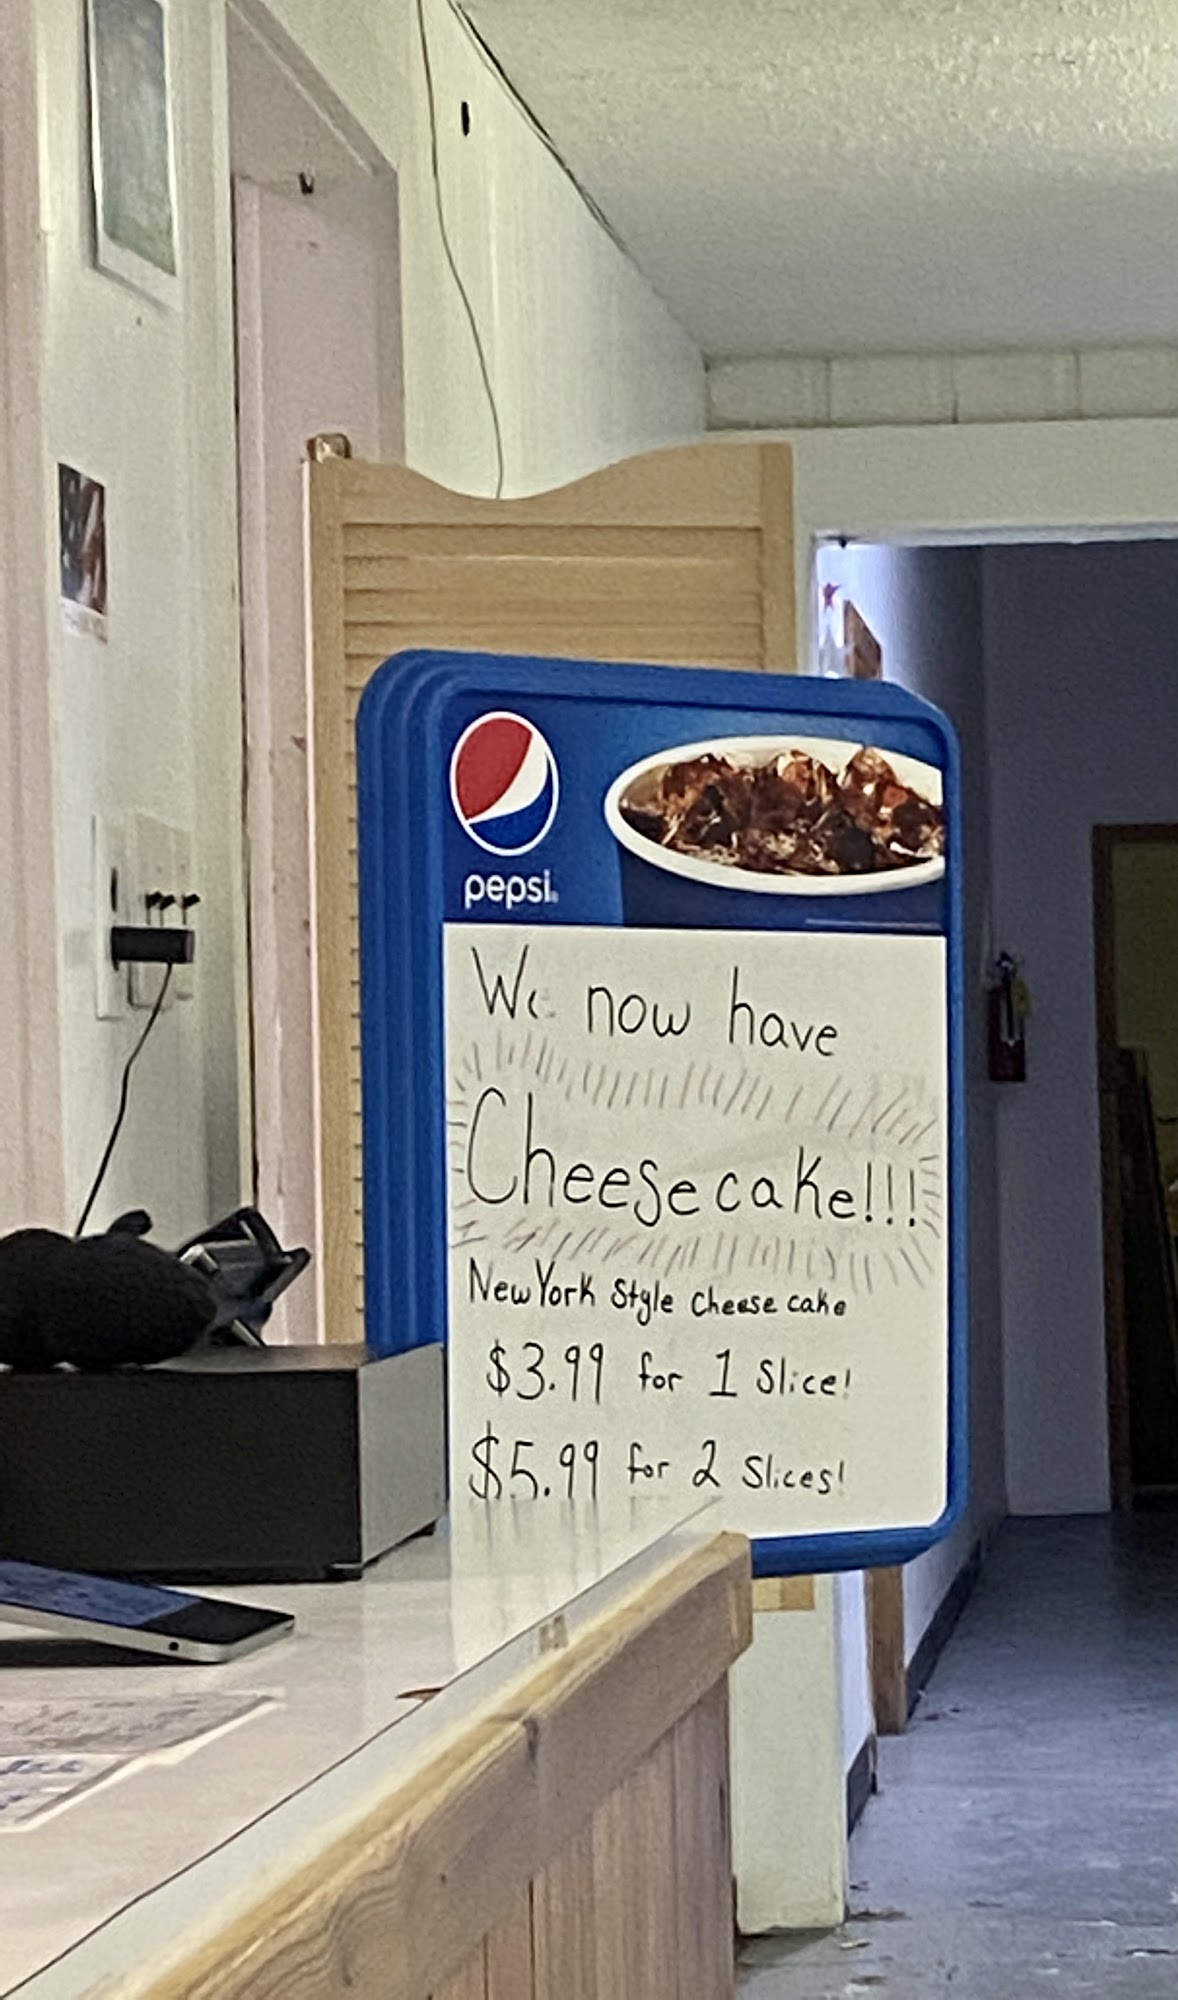 pepsi
We now have
Cheesecake!!!
New York Style Cheesecake
$3.99 for 1 Slice!
$5.99 for 2 Slices!